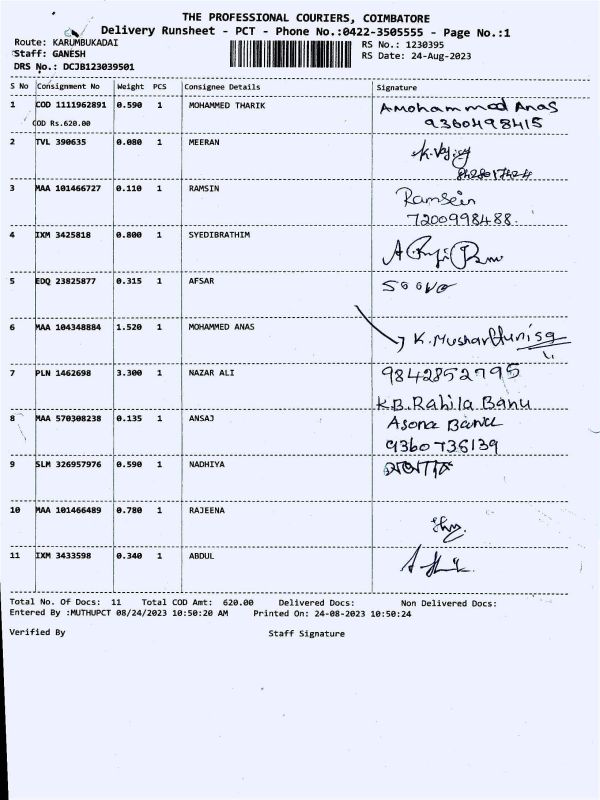 THE PROFESSIONAL COURIERS, COIMBATORE
Delivery Runsheet - PCT - Phone No.:0422-3505555 - Page No.:1
Route: KARUMBUKADAI
Staff: GANESH
DRS No.: DCJB123039501
RS No.: 1230395
RS Date: 24-Aug-2023
S No Consignment No Weight PCS Consignee Details Signature
1 COD 1111962891 0.590 1 MOHAMMED THARIK A Mohammed Anas
COD Rs.620.00 9360498415
2 TVL 390635 0.080 1 MEERAN
3 MAA 101466727 0.110 1 RAMSIN Ramsein
7200998488.
4 IXM 3425818 0.800 1 SYEDIBRATHIM
5 EDQ 23825877 0.315 1 AFSAR
6 MAA 104348884 1.520 1 MOHAMMED ANAS K. Musharffunisa
7 PLN 1462698 3.300 1 NAZAR ALI 9842852795
K.B. Rahila Banu
8 MAA 570308238 0.135 1 ANSAJ Asona Banu
9360736139
9 SLM 326957976 0.590 1 NADHIYA
10 MAA 101466489 0.780 1 RAJEENA
11 IXM 3433598 0.340 1 ABDUL
Total No. Of Docs: 11 Total COD Amt: 620.00 Delivered Docs: Non Delivered Docs:
Entered By :MUTHUPCT 08/24/2023 10:50:20 AM Printed On: 24-08-2023 10:50:24
Verified By Staff Signature